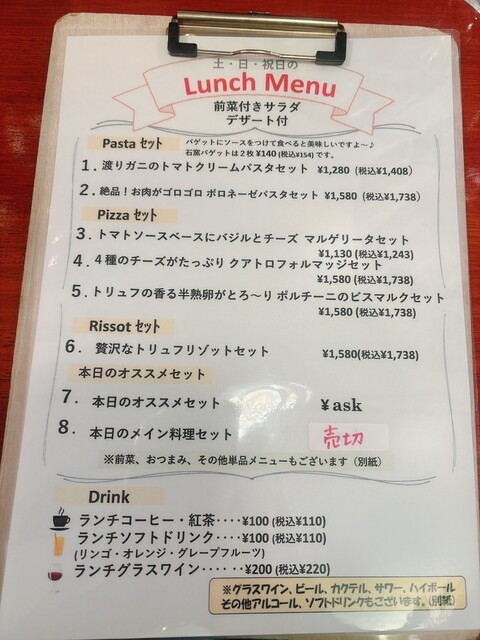 土・日・祝日の
Lunch Menu
前菜付きサラダ
デザート付
Pasta セット
バゲットにソースをつけて食べると美味しいですよ～♪
石窯バゲットは２枚 ¥140 (税込¥154) です。
1. 渡りガニのトマトクリームパスタセット ¥1,280 (税込¥1,408)
2. 絶品！お肉がゴロゴロ ボロネーゼパスタセット ¥1,580 (税込¥1,738)
Pizza セット
3. トマトソースベースにバジルとチーズ マルゲリータセット
¥1,130 (税込¥1,243)
4. ４種のチーズがたっぷり クアトロフォルマッジセット
¥1,580 (税込¥1,738)
5. トリュフの香る半熟卵がとろ～り ポルチーニのビスマルクセット
¥1,580 (税込¥1,738)
Rissot セット
6. 贅沢なトリュフリゾットセット ¥1,580(税込¥1,738)
本日のオススメセット
7. 本日のオススメセット ¥ask
8. 本日のメイン料理セット 売切
※前菜、おつまみ、その他単品メニューもございます（別紙）
Drink
ランチコーヒー・紅茶････¥100 (税込¥110)
ランチソフトドリンク････¥100 (税込¥110)
(リンゴ・オレンジ・グレープフルーツ)
ランチグラスワイン･･････¥200 (税込¥220)
※グラスワイン、ビール、カクテル、サワー、ハイボール
その他アルコール、ソフトドリンクもございます。(別紙)